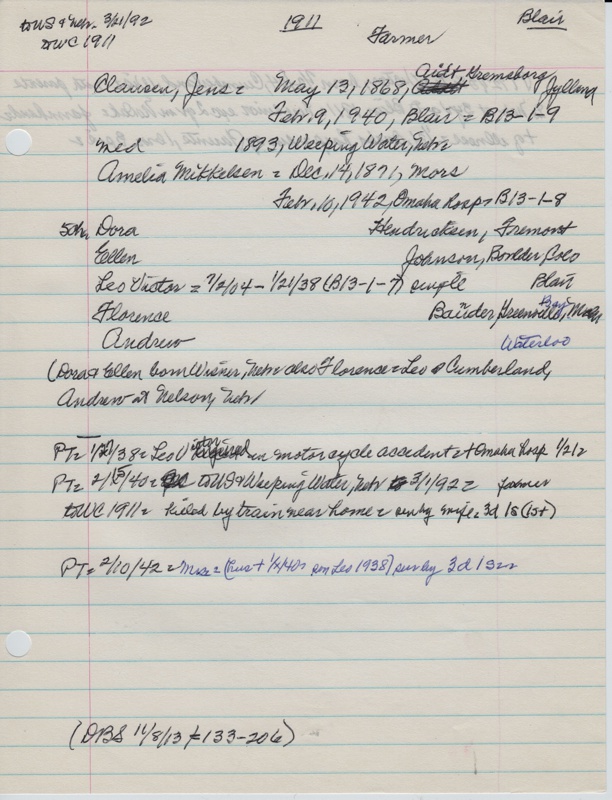 to US & Nebr. 3/21/92 1911 Blair
to WC 1911
Farmer
Clausen, Jens = May 13, 1868, Aidt, Jylland
Febr. 9, 1940, Blair = B13-1-9
med 1893, Weeping Water, Nebr =
Amelia Mikkelsen = Dec. 14, 1871, Mors
Febr. 10, 1942, Omaha Hosp = B13-1-8
5ch, Dora Hendricksen, Fremont
Ellen Johnson, Boulder, Colo
Leo Victor = 7/2/04 - 1/21/38 (B13-1-7) single Blair
Florence Bauder,
Andrew Waterloo
(Dora & Ellen born Wisner, Nebr also Florence = Leo @ Cumberland,
Andrew at Nelson, Nebr
PT = Leo in motorcycle accident + Omaha Hosp
PT = 2/15/40 = to US & Weeping Water, Nebr 3/1/92 = farmer
to WC 1911 = killed by train near home = sur by wife = 3d 1s
PT = 2/10/42 = Mrs = son Leo 1938) sur by 3d 1s
(DBS 11/8/13 133-206)